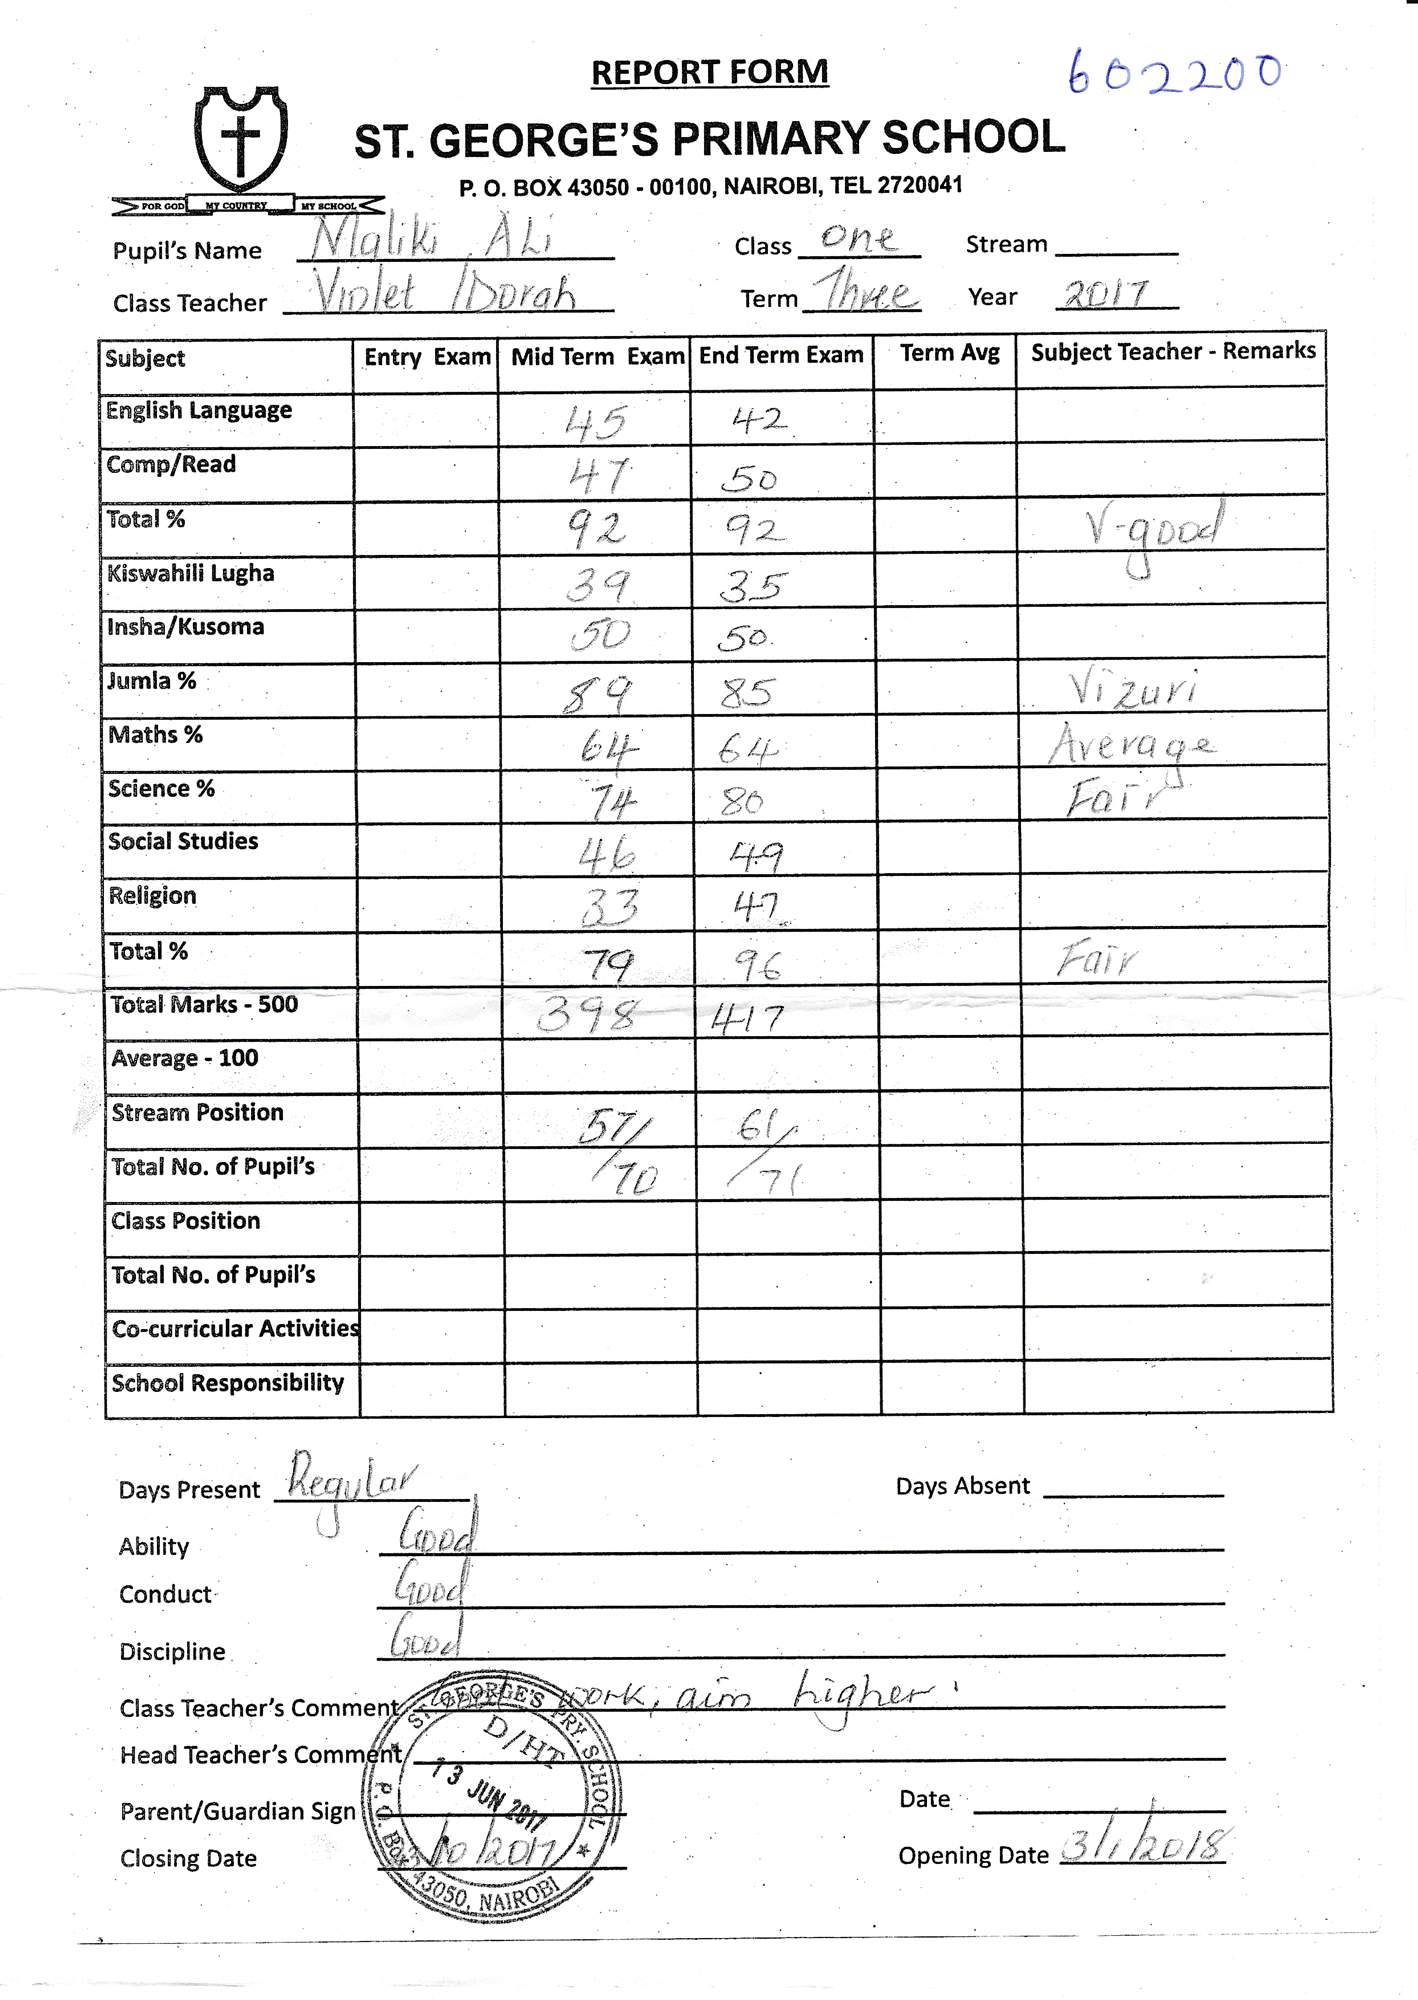 REPORT FORM
602200
ST. GEORGE'S PRIMARY SCHOOL
P. O. BOX 43050 - 00100, NAIROBI, TEL 2720041
FOR GOD MY COUNTRY MY SCHOOL
Pupil's Name Maliki ALi Class One Stream
Class Teacher Violet /Dorah Term Three Year 2017
Subject Entry Exam Mid Term Exam End Term Exam Term Avg Subject Teacher - Remarks
English Language 45 42
Comp/Read 47 50
Total % 92 92 V-good
Kiswahili Lugha 39 35
Insha/Kusoma 50 50
Jumla % 89 85 Vizuri
Maths % 64 64 Average
Science % 74 80 Fair
Social Studies 46 49
Religion 33 47
Total % 79 96 Fair
Total Marks - 500 398 417
Average - 100
Stream Position 57/ 61/
Total No. of Pupil's /70 /71
Class Position
Total No. of Pupil's
Co-curricular Activities
School Responsibility
Days Present Regular Days Absent
Ability Good
Conduct Good
Discipline Good
Class Teacher's Comment work, aim higher.
Head Teacher's Comment
Parent/Guardian Sign Date
Closing Date /10/2017 Opening Date 3/1/2018
ST. GEORGE'S PRY. SCHOOL
D/HT
13 JUN 2017
P. O. Box 43050, NAIROBI